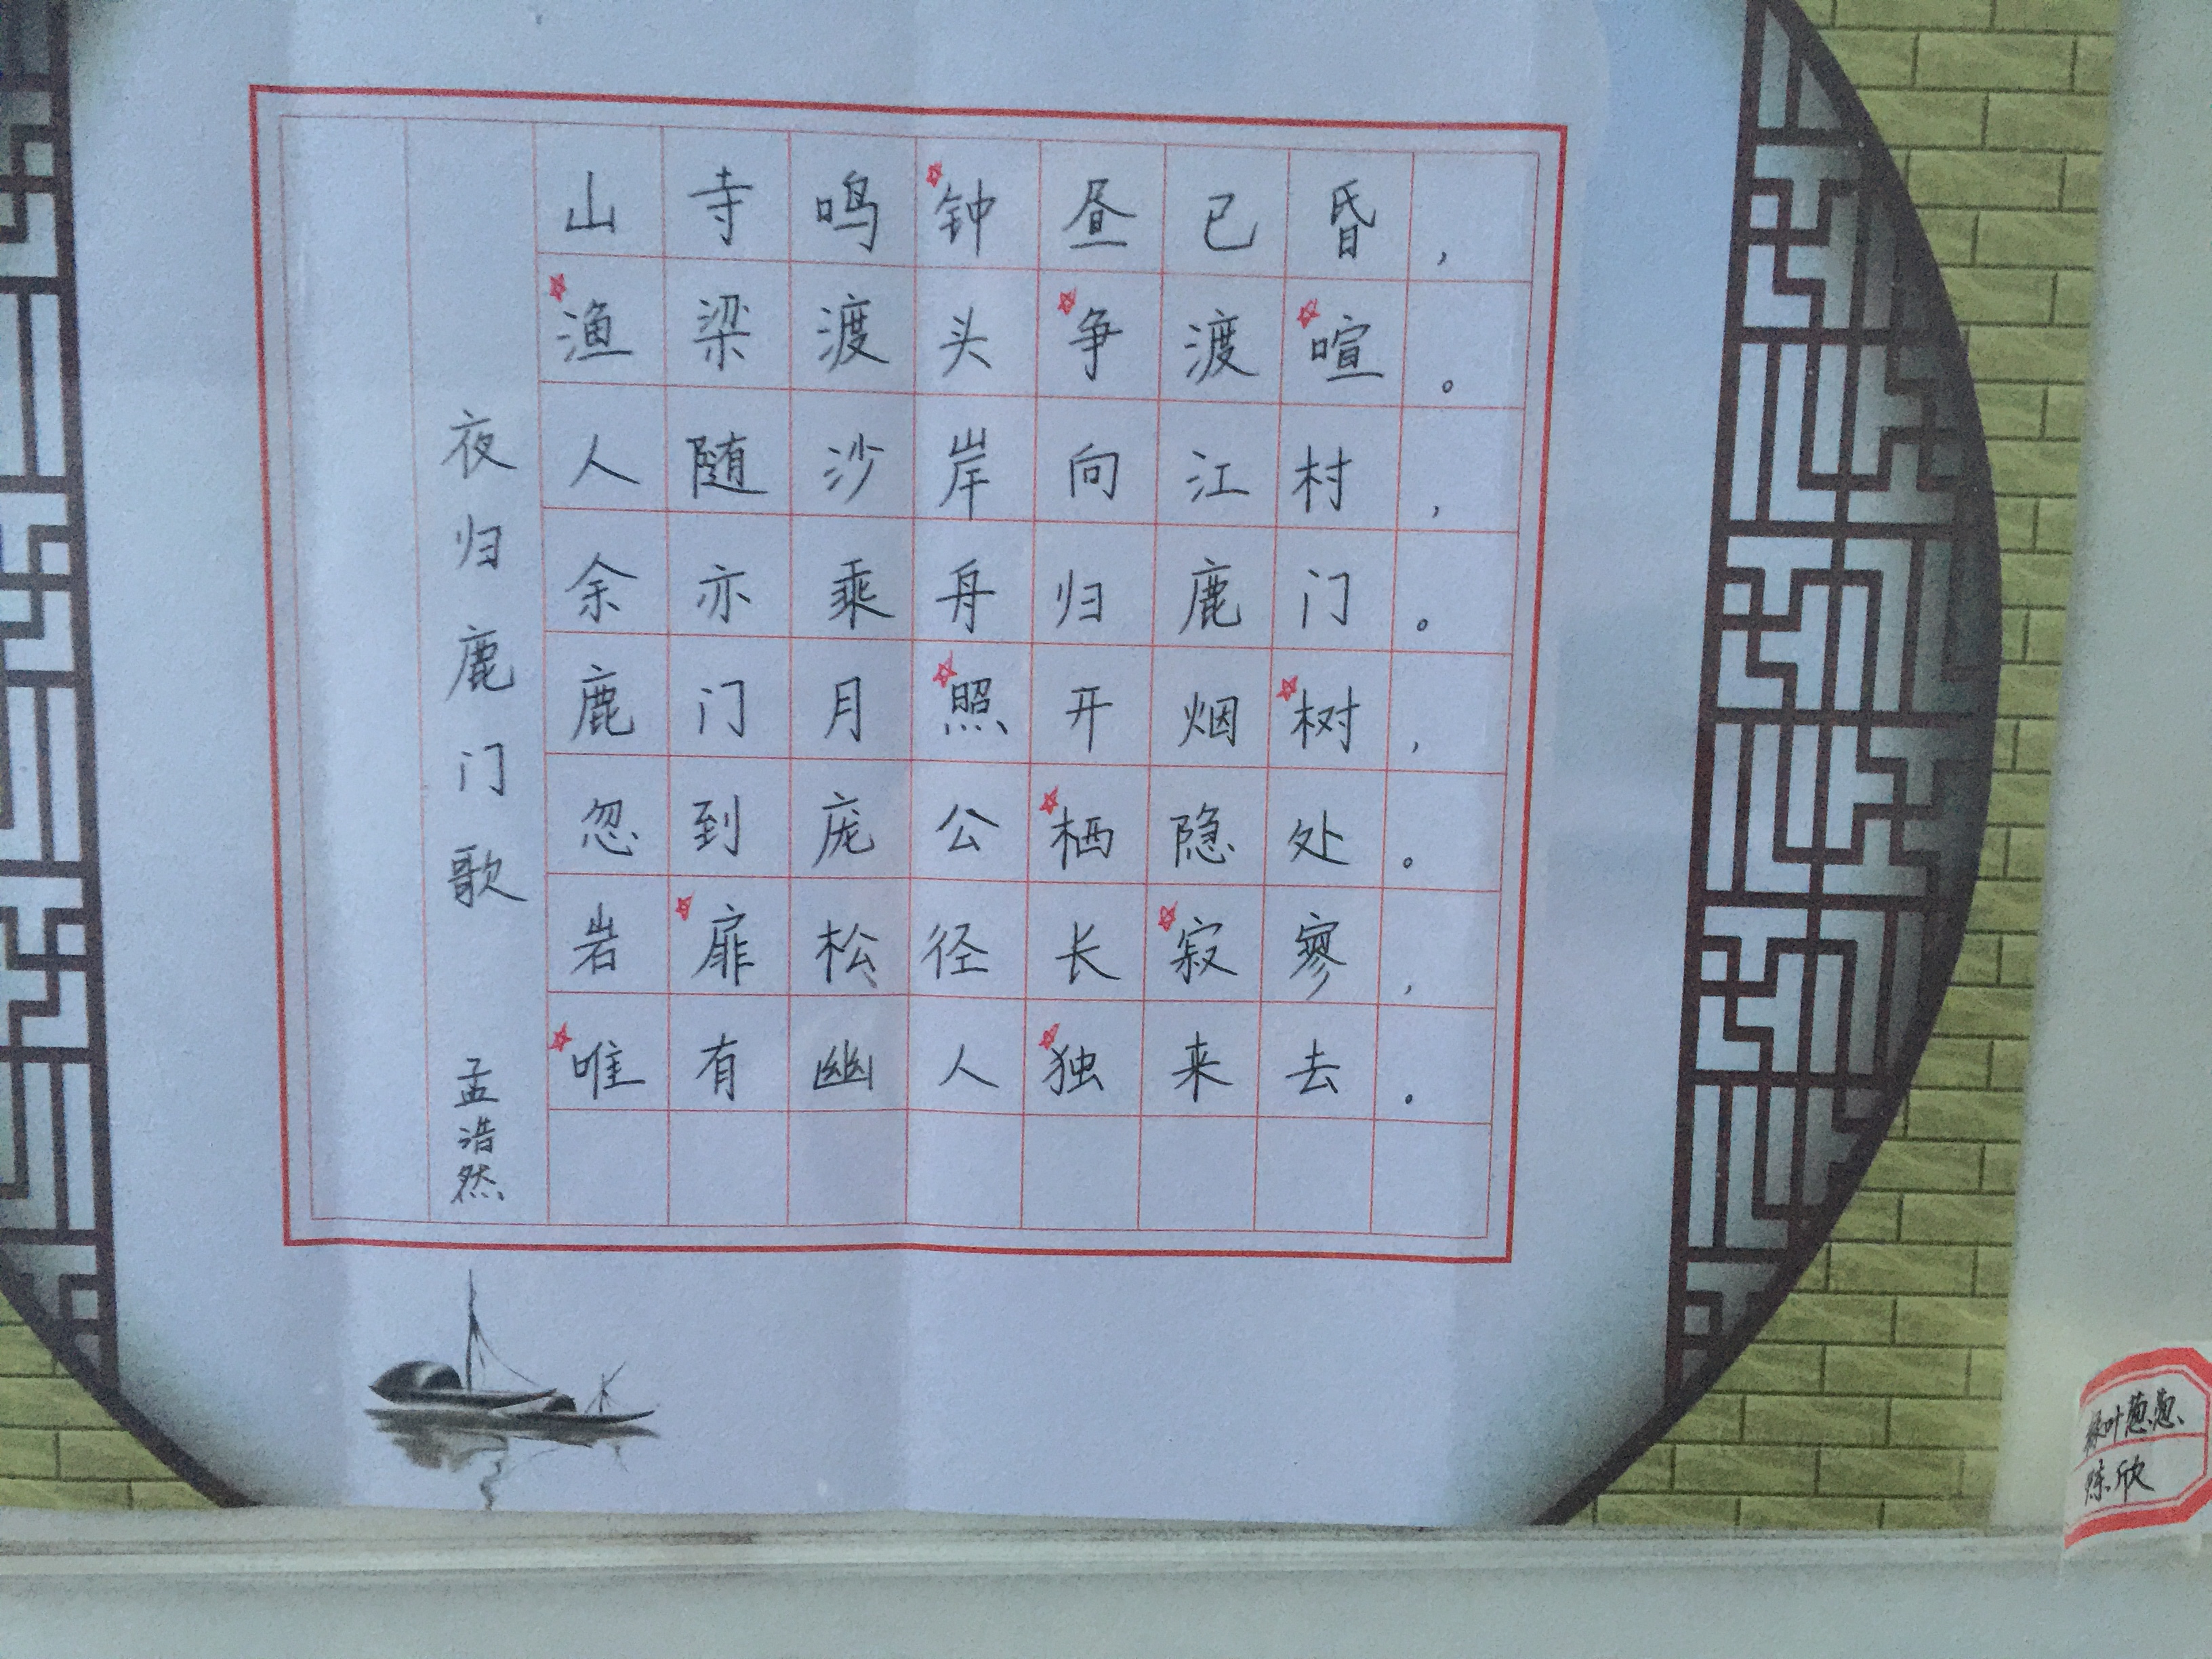 夜归鹿门歌
孟浩然
山寺鸣钟昼已昏，
渔梁渡头争渡喧。
人随沙岸向江村，
余亦乘舟归鹿门。
鹿门月照开烟树，
忽到庞公栖隐处。
岩扉松径长寂寥，
唯有幽人独来去。
绿叶葱葱
陈欣